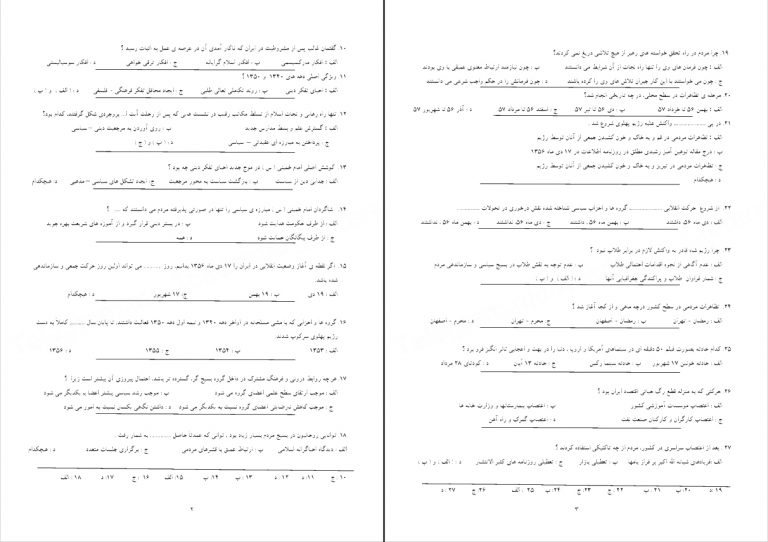 ۱۰. گفتمان غالب پس از مشروطیت در ایران که ناکار آمدی آن در عرصه ی عمل به اثبات رسید ؟
الف : افکار مارکسیسمی ب : افکار اسلام گرایانه ج : افکار ترقی خواهی د : افکار سوسیالیستی
۱۱. ویژگی اصلی دهه های ۱۳۴۰ و ۱۳۵۰ ؟
الف : احیای تفکر دینی ب : روند تکاملی تعالی طلبی ج : ایجاد محافل تفکر فرهنگی - فلسفی د : ( الف ، و ( ب )
۱۲. تنها راه رهایی و نجات اسلام از تسلط مکاتب رقیب در نشست هایی که پس از رحلت آیت ا... بروجردی شکل گرفتند، کدام بود؟
الف : گسترش علم و بسط مدارس جدید ب : روی آوردن به مرجعیت دینی – سیاسی
ج : پرداختن به مبارزه ای عقیدتی – سیاسی د : ( ب ) و ( ج )
۱۳. کوشش اصلی امام خمینی ( س ) در موج جدید احیای تفکر دینی چه بود ؟
الف : جدایی دین از سیاست ب : بازگشت سیاست به محور مرجعیت ج : ایجاد تشکل های سیاسی –مذهبی د : هیچکدام
۱۴. شاگردان امام خمینی ( س ) مبارزه ی سیاسی را تنها در صورتی پذیرفته مردم می دانستند که .... ؟
الف : از طرف حکومت هدایت شود ب : در بستر دینی قرار گیرد و از آموزه های شریعت بهره جوید
ج : از طرف بیگانگان حمایت شود د : همه
۱۵. اگر نقطه ی آغاز وضعیت انقلابی در ایران را ۱۷ دی ماه ۱۳۵۶ بدانیم، روز .......... می تواند اولین روز حرکت جمعی و سازماندهی
شده باشد.
الف : ۱۹ دی ب : ۱۹ بهمن ج: ۱۷ شهریور د : هیچکدام
۱۶. گروه ها و احزابی که با مشی مسلحانه در اواخر دهه ۱۳۴۰ و نیمه اول دهه ۱۳۵۰ فعالیت داشتند، تا پایان سال ......... کاملا به دست
رژیم پهلوی سرکوب شدند.
الف : ۱۳۵۳ ب : ۱۳۵۴ ج : ۱۳۵۵ د : ۱۳۵۶
۱۷. هرچه روابط درونی و فرهنگ مشترک در داخل گروه بسیج گر، گسترده تر باشد، احتمال پیروزی آن بیشتر است زیرا ؟
الف : موجب ارتقای سطح علمی اعضای گروه می شود ب : موجب رشد سیاسی بیشتر اعضا به یکدیگر می شود
ج : موجب کاهش نارضایتی اعضای گروه نسبت به یکدیگر می شود د : داشتن نگاهی یکسان نسبت به امور می شود
۱۸. توانایی روحانیون در بسیج مردم بسیار زیاد بود . توانی که عمدتا حاصل ............ به شمار رفت.
الف : دیدگاه احیاگرانه اسلامی ب : ارتباط عمیق با قشرهای مردمی ج : برگزاری جلسات متعدد د : هیچکدام
۱۰. ج ۱۱: د ۱۲. د ۱۳: ب ۱۴: ب ۱۵: الف ۱۶ : ج ۱۷: د ۱۸ : الف
۲
۱۹. چرا مردم در راه تحقق خواسته های رهبر از هیچ تلاشی دریغ نمی کردند؟
الف : چون فرمان های وی را تنها راه نجات از آن شرایط می دانستند ب : چون نیازمند ارتباط معنوی عمیقی با وی بودند
ج : چون می خواستند با این کار جبران تلاش های وی را کرده باشند د : چون فرمانش را در حکم واجب شرعی می دانستند
۲۰. مرحله ی تظاهرات در سطح محلی، در چه تاریخی انجام شد؟
الف : بهمن ۵۶ تا خرداد ۵۷ ب : دی ۵۶ تا تیر ۵۷ ج : اسفند ۵۶ تا مرداد ۵۷ د : آذر ۵۶ تا شهریور ۵۷
۲۱. در پی ..................... واکنش علیه رژیم پهلوی شروع شد .
الف : تظاهرات مردمی در قم و به خاک و خون کشیدن جمعی از آنان توسط رژیم
ب : درج مقاله توهین آمیز رشیدی مطلق در روزنامه اطلاعات در ۱۷ دی ماه ۱۳۵۶
ج : تظاهرات مردمی در تبریز و به خاک و خون کشیدن جمعی از آنان توسط رژیم
د : هیچکدام
۲۲. از شروع حرکت انقلابی ..................... گروه ها و احزاب سیاسی شناخته شده نقش درخوری در تحولات ...............
الف : دی ماه ۵۶، داشتند ب : بهمن ماه ۵۶، داشتند ج : دی ماه ۵۶، نداشتند د : بهمن ماه ۵۶ ، نداشتند
۲۳. چرا رژیم شاه قادر به واکنش لازم در برابر طلاب نبود ؟
الف : عدم آگاهی از نحوه اقدامات احتمالی طلاب ب : عدم توجه به نقش طلاب در بسیج سیاسی و سازماندهی مردم
ج : شمار فراوان طلاب و پراکندگی جغرافیایی آنها د : ( الف ) و ( ب )
۲۴. تظاهرات مردمی در سطح کشور درچه ماهی و از کجا آغاز شد ؟
الف : رمضان – تهران ب : رمضان – اصفهان ج: محرم – تهران د : محرم – اصفهان
۲۵. کدام حادثه بصورت فیلم ۵۰ دقیقه ای در سینماهای آمریکا و اروپا ، دنیا را در بهت و اعجابی تاثر انگیز فرو برد ؟
الف : حادثه خونین ۱۷ شهریور ب : حادثه سینما رکس ج : حادثه ۱۳ آبان د : کودتای ۲۸ مرداد
۲۶. حرکتی که به منزله قطع رگ حیاتی اقتصاد ایران بود ؟
الف : اعتصاب موسسات آموزشی کشور ب : اعتصاب بیمارستانها و وزارت خانه ها
ج : اعتصاب کارگران و کارکنان صنعت نفت د : اعتصاب گمرک و راه آهن
۲۷. بعد از اعتصاب سراسری در کشور، مردم از چه تاکتیکی استفاده کردند ؟
الف :فریادهای شبانه الله اکبر بر فراز بامها ب : تعطیلی بازار ج : تعطیلی روزنامه های کثیر الانتشار د : ( الف ) و ( ب )
۱۹: د ۲۰: ب ۲۱: ب ۲۲: ج ۲۳: ج ۲۴: ب ۲۵ : الف ۲۶: ج ۲۷: د
۳